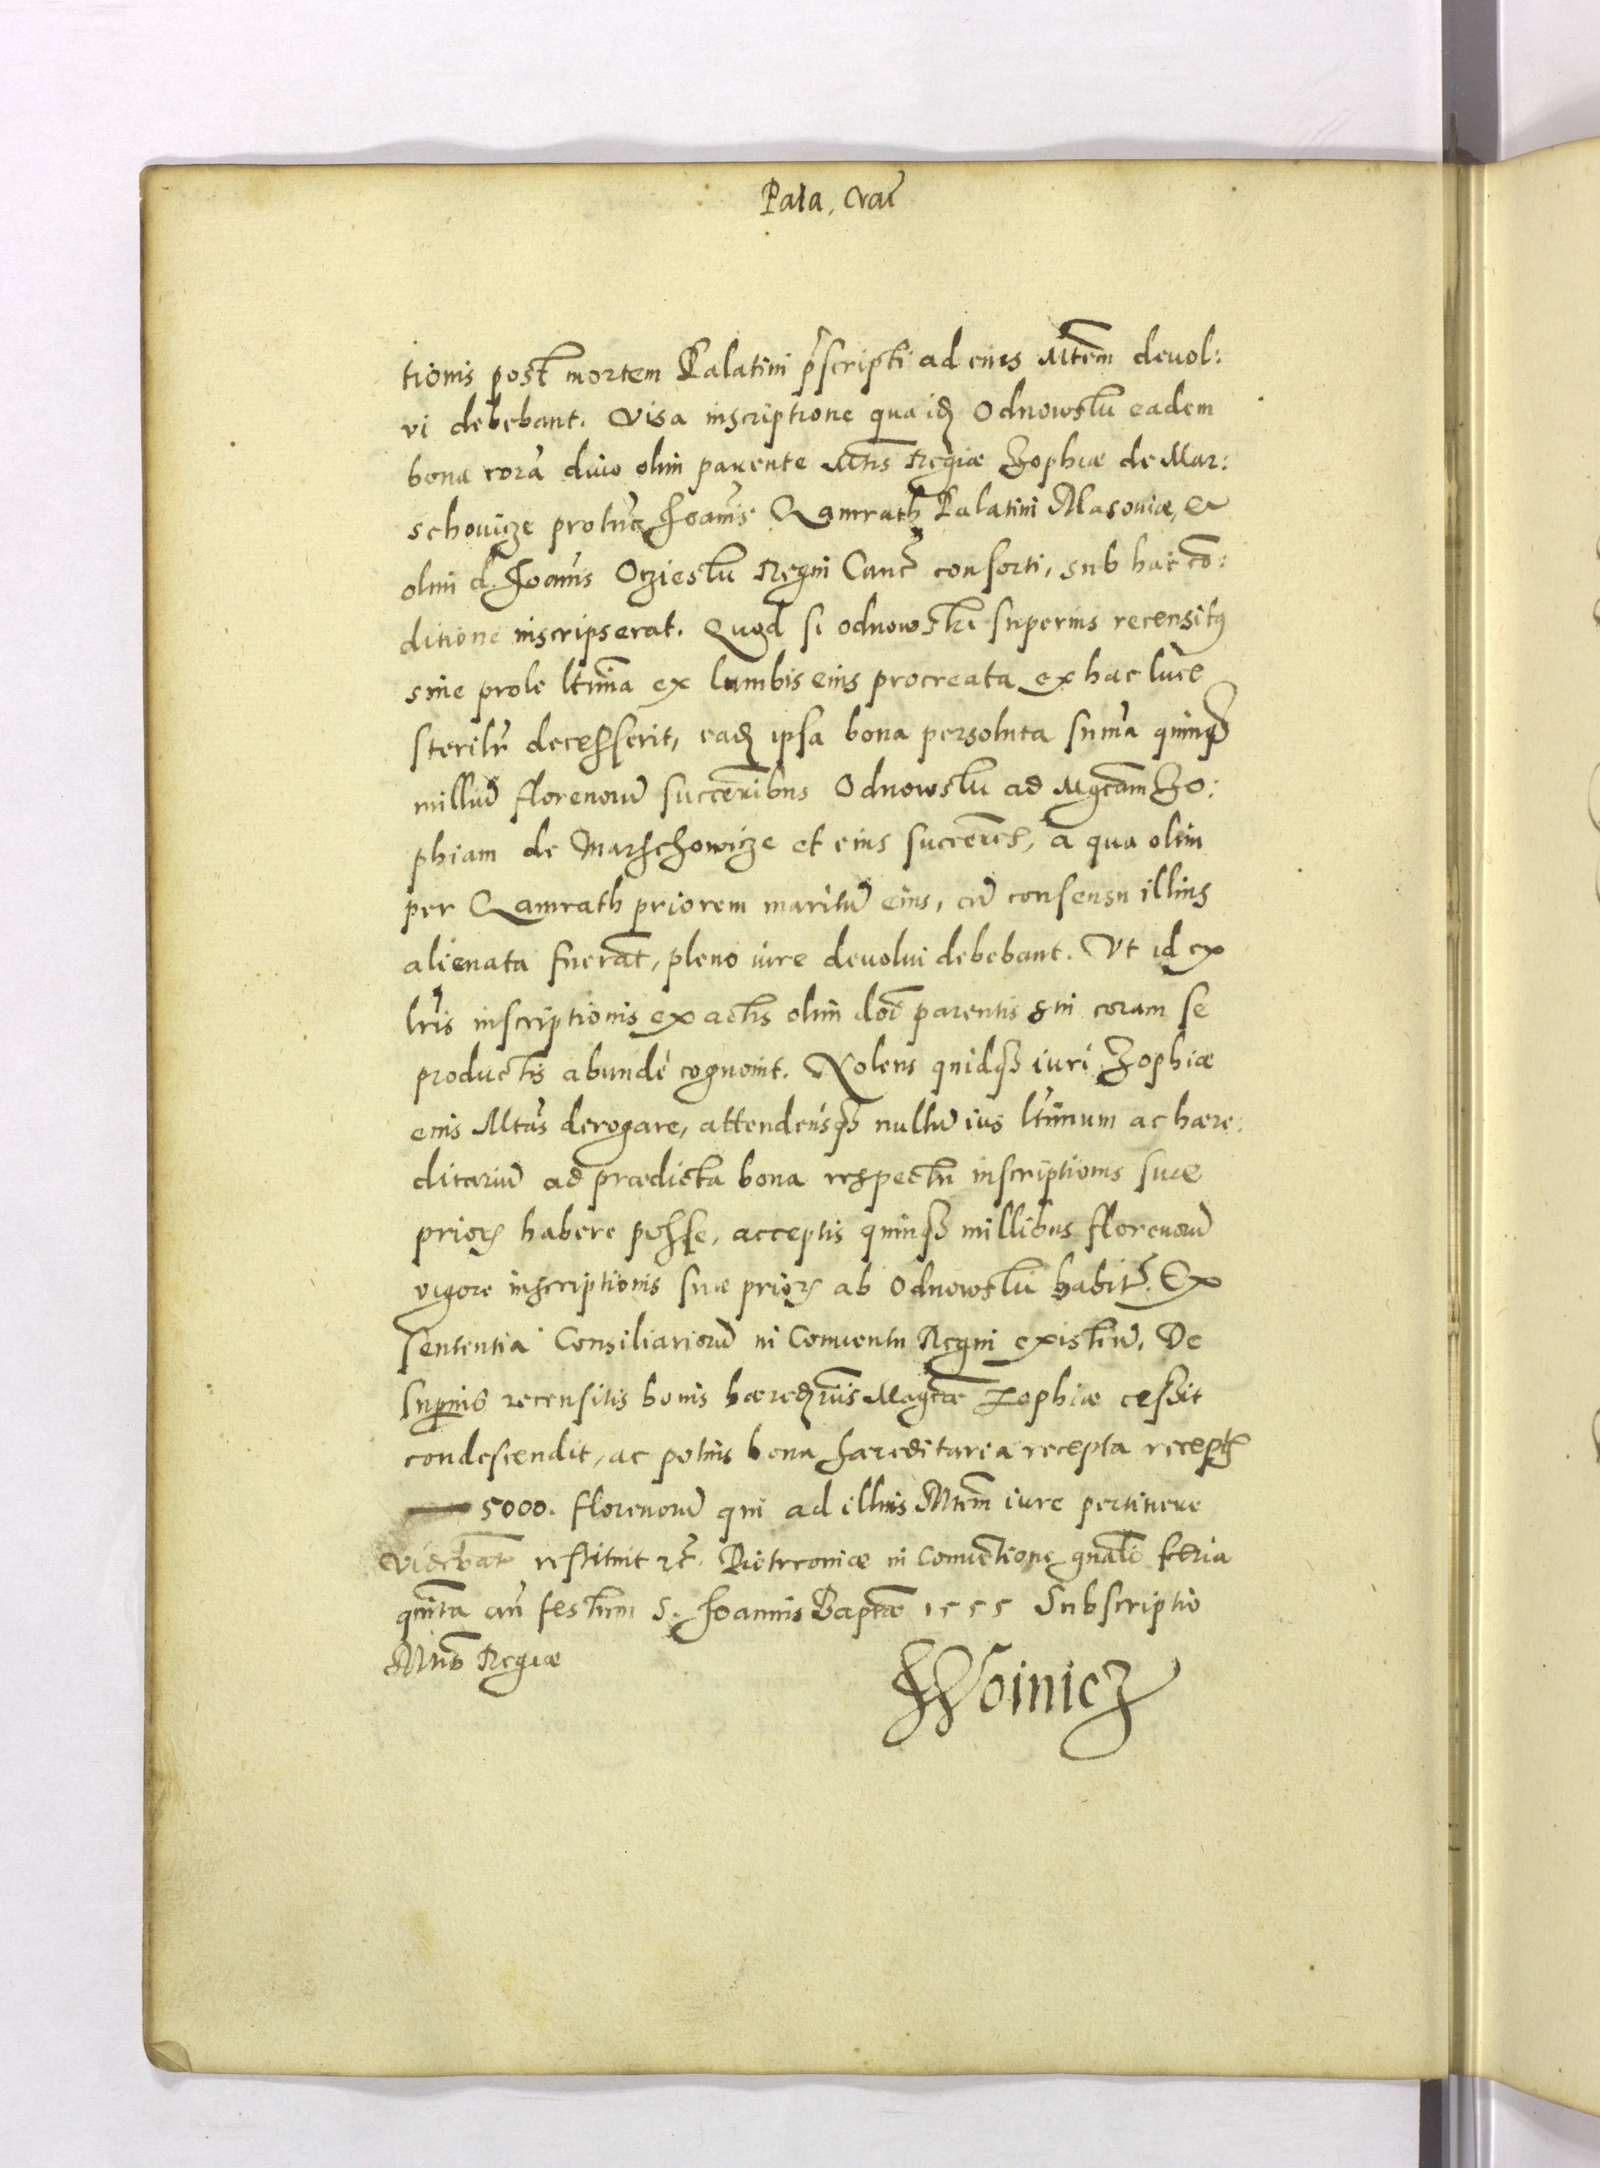 Pala, Crac̄
tionis post mortem Palatini p̄scripti ad eius Mt̄em deuol:
ui debebant. Visa inscriptione qua idē Odnowskii eadem
bona corā diuo olim parente Mt̄is Regiæ Zophiæ de Mar:
schouicze protūc Joañis Qamrath Palatini Masouiæ, &
olim d. Joañis Oczieskii Regni Canc̄ consorti, sub hac cō:
ditione inscripserat. Quod si Odnowski superius recensitꝰ
sine prole ltima ex lumbis eius procreata ex hac luce
sterilr̄ decesserit, eadē ipsa bona persoluta suma quinqꝫ
milliū florenorū succeribus Odnowskii ad Mgcam Zo:
phiam de Marschowicze et eius succeres, a qua olim
per Qamrath priorem maritū eius, cū consensu illius
alienata fuerāt, pleno iure deuolui debebant. Vt id ex
lris inscriptionis ex actis olim doī parentis sui coram se
productis abundè cognouit. Nolens quidqꝫ iuri Zophiæ
eius Mtās derogare, attendensqꝫ nullū ius ltimum ac hære:
ditariū ad prædicta bona respectu inscriptionis suæ
prioris habere posse, acceptis quinqꝫ millibus florenorū
vigore inscriptionis suæ prioris ab Odnowskii habit. Ex
sententia Consiliariorū in Conuentu Regni existen̄. De
supius recensitis bonis hæredriis Magcæ Zophiæ cessit
condescendit, ac potius bona hæreditaria recepta recept
5000. florenorū qui ad illius Mtem iure pertinere
videbāt restituit &c. Pietrcouiæ in Conuētione gnali feria
quīta añ festum S. Joannis Baptæ 1555 Subscriptio
Mtis Regiæ
Woinicz